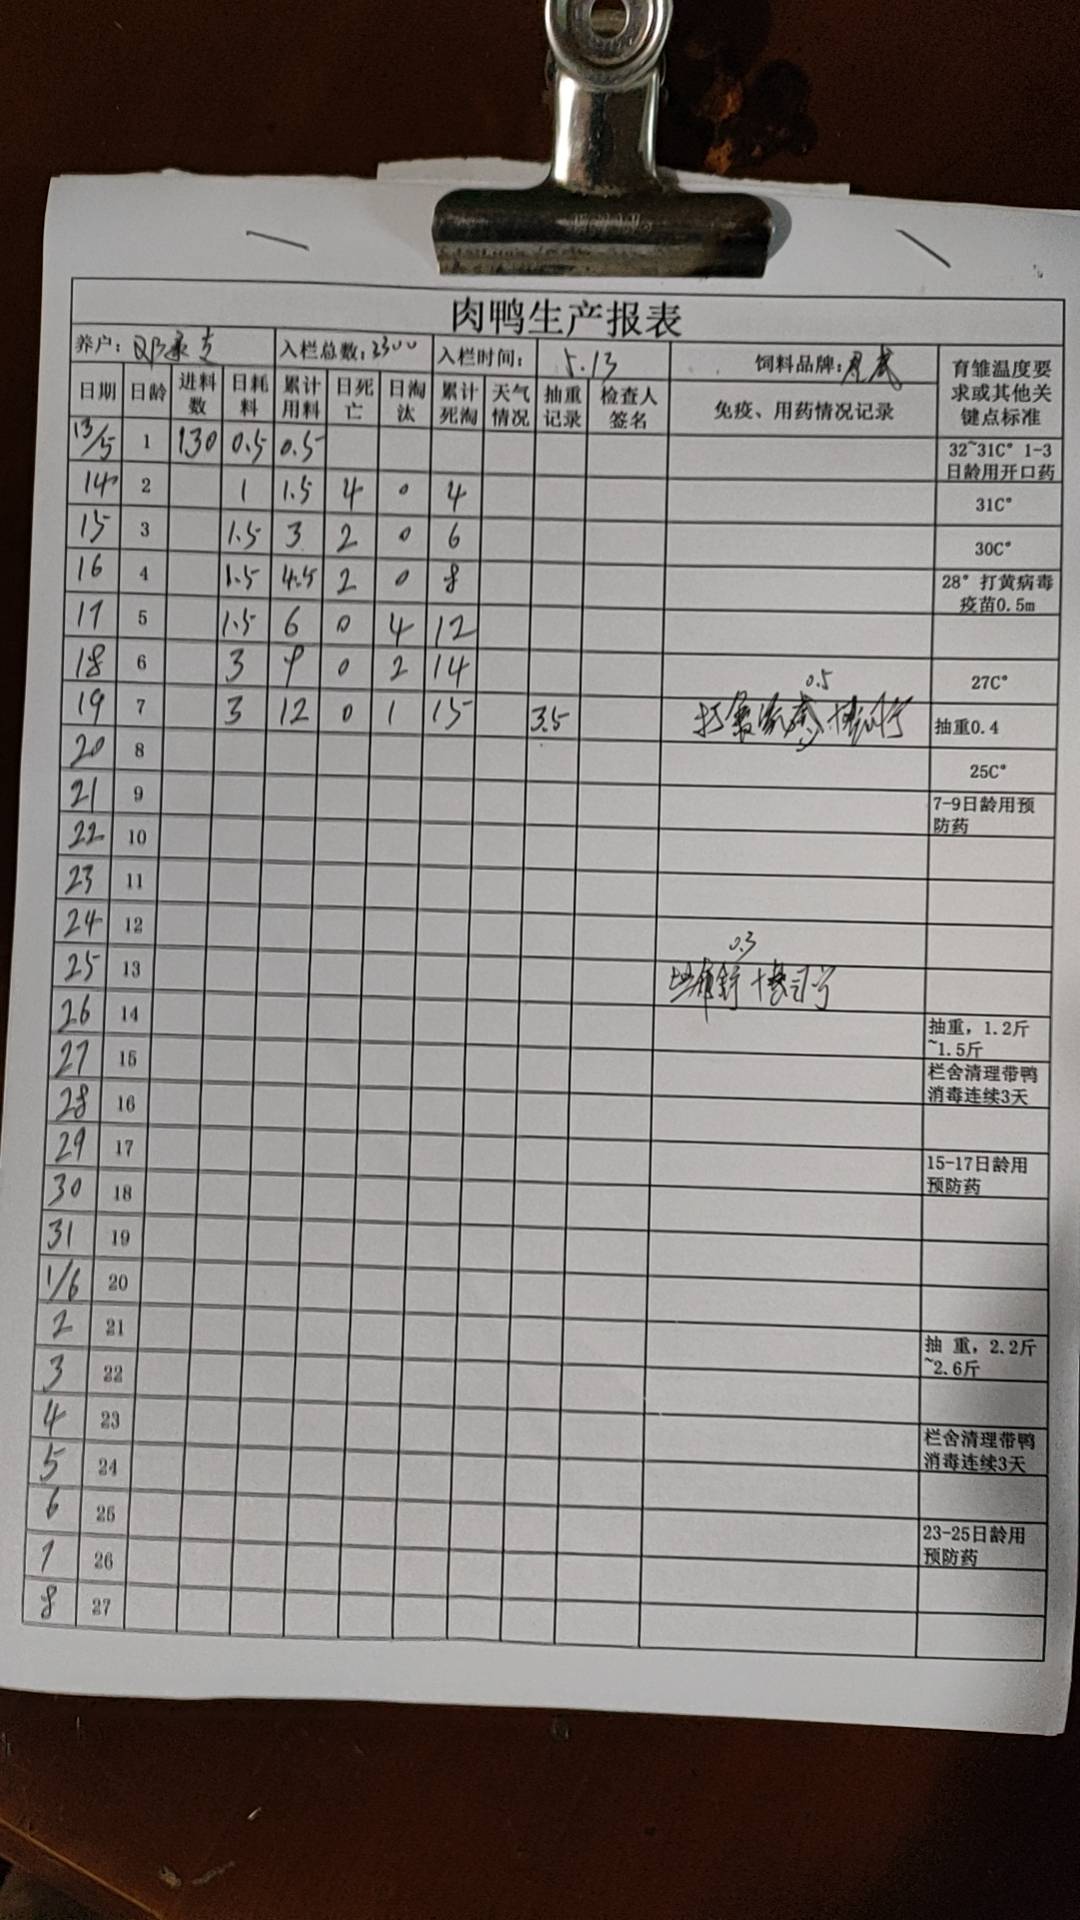 肉鸭生产报表
养户: 邓 入栏总数:3300 入栏时间: 5.13 饲料品牌: 育雏温度要求或其他关键点标准
日期 日龄 进料数 日耗料 累计用料 日死亡 日淘汰 累计死淘 天气情况 抽重记录 检查人签名 免疫、用药情况记录
13/5 1 130 0.5 0.5 32~31C° 1-3日龄用开口药
14 2 1 1.5 4 0 4 31C°
15 3 1.5 3 2 0 6 30C°
16 4 1.5 4.5 2 0 8 28° 打黄病毒疫苗0.5m
17 5 1.5 6 0 4 12
18 6 3 9 0 2 14 27C°
0.5
19 7 3 12 0 1 15 3.5 打 抽重0.4
20 8 25C°
21 9 7-9日龄用预防药
22 10
23 11
24 12
0.3
25 13
26 14 抽重，1.2斤~1.5斤
27 15 栏舍清理带鸭消毒连续3天
28 16
29 17 15-17日龄用预防药
30 18
31 19
1/6 20
2 21 抽 重，2.2斤~2.6斤
3 22
4 23 栏舍清理带鸭消毒连续3天
5 24
6 25 23-25日龄用预防药
7 26
8 27